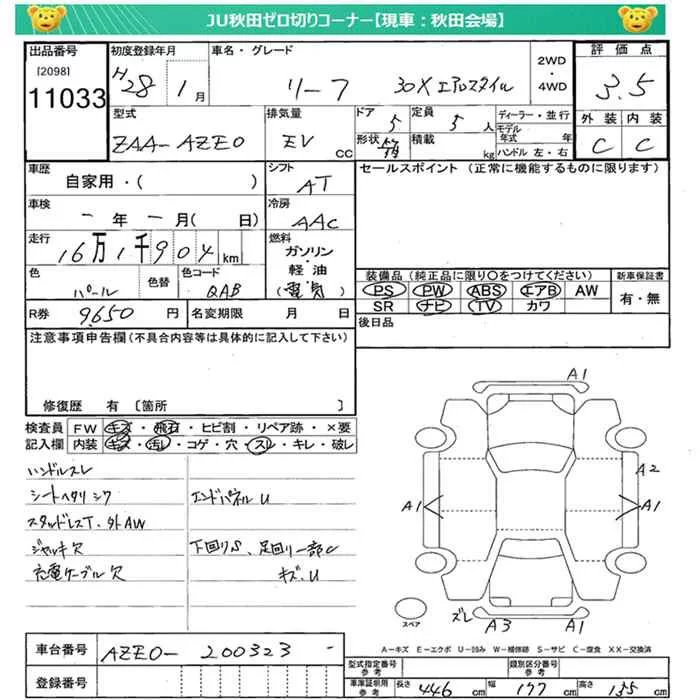 JU秋田ゼロ切りコーナー【現車：秋田会場】
出品番号
[2098]
11033
初度登録年月
H28 1月
車名・グレード
リーフ 30X エアロスタイル
2WD
・
4WD
評価点
3.5
外装 内装
C C
型式
ZAA-AZE0
排気量
EV
CC
ドア
5
定員
5人
形状
積載
kg
ディーラー・並行
モデル年式 年
ハンドル 左・右
車歴
自家用・( )
シフト
AT
セールスポイント (正常に機能するものに限ります)
車検
-年-月( 日)
冷房
AAC
走行
16万1千904km
燃料
ガソリン
・
軽油
(電気)
色
パール
色替
色コード
QAB
装備品 (純正品に限り○をつけてください)
PS PW ABS エアB AW
SR ナビ TV カワ
新車保証書
有・無
R券 9,650円
名変期限 月 日
後日品
注意事項申告欄(不具合内容等は具体的に記入して下さい)
修復歴 有 〔箇所 〕
検査員記入欄
FW キズ・飛石・ヒビ割・リペア跡・×要
内装 キズ・汚れ・コゲ・穴・スレ・キレ・破レ
ハンドルスレ
シートヘタリ シワ
スタッドレスT.外AW
ジャッキ欠
充電ケーブル欠
エンドパネルU
下回りS、足回り一部C
キズ.U
A1
A2
A1
A1
スペア
ズレ
A3
A1
A-キズ E-エクボ U-凹み W-補修跡 S-サビ C-腐食 XX-交換済
車台番号
AZE0-200323-
登録番号
型式指定番号
参考
類別区分番号
参考
車庫証明用
参考
長さ 446cm 幅 177cm 高さ 155cm